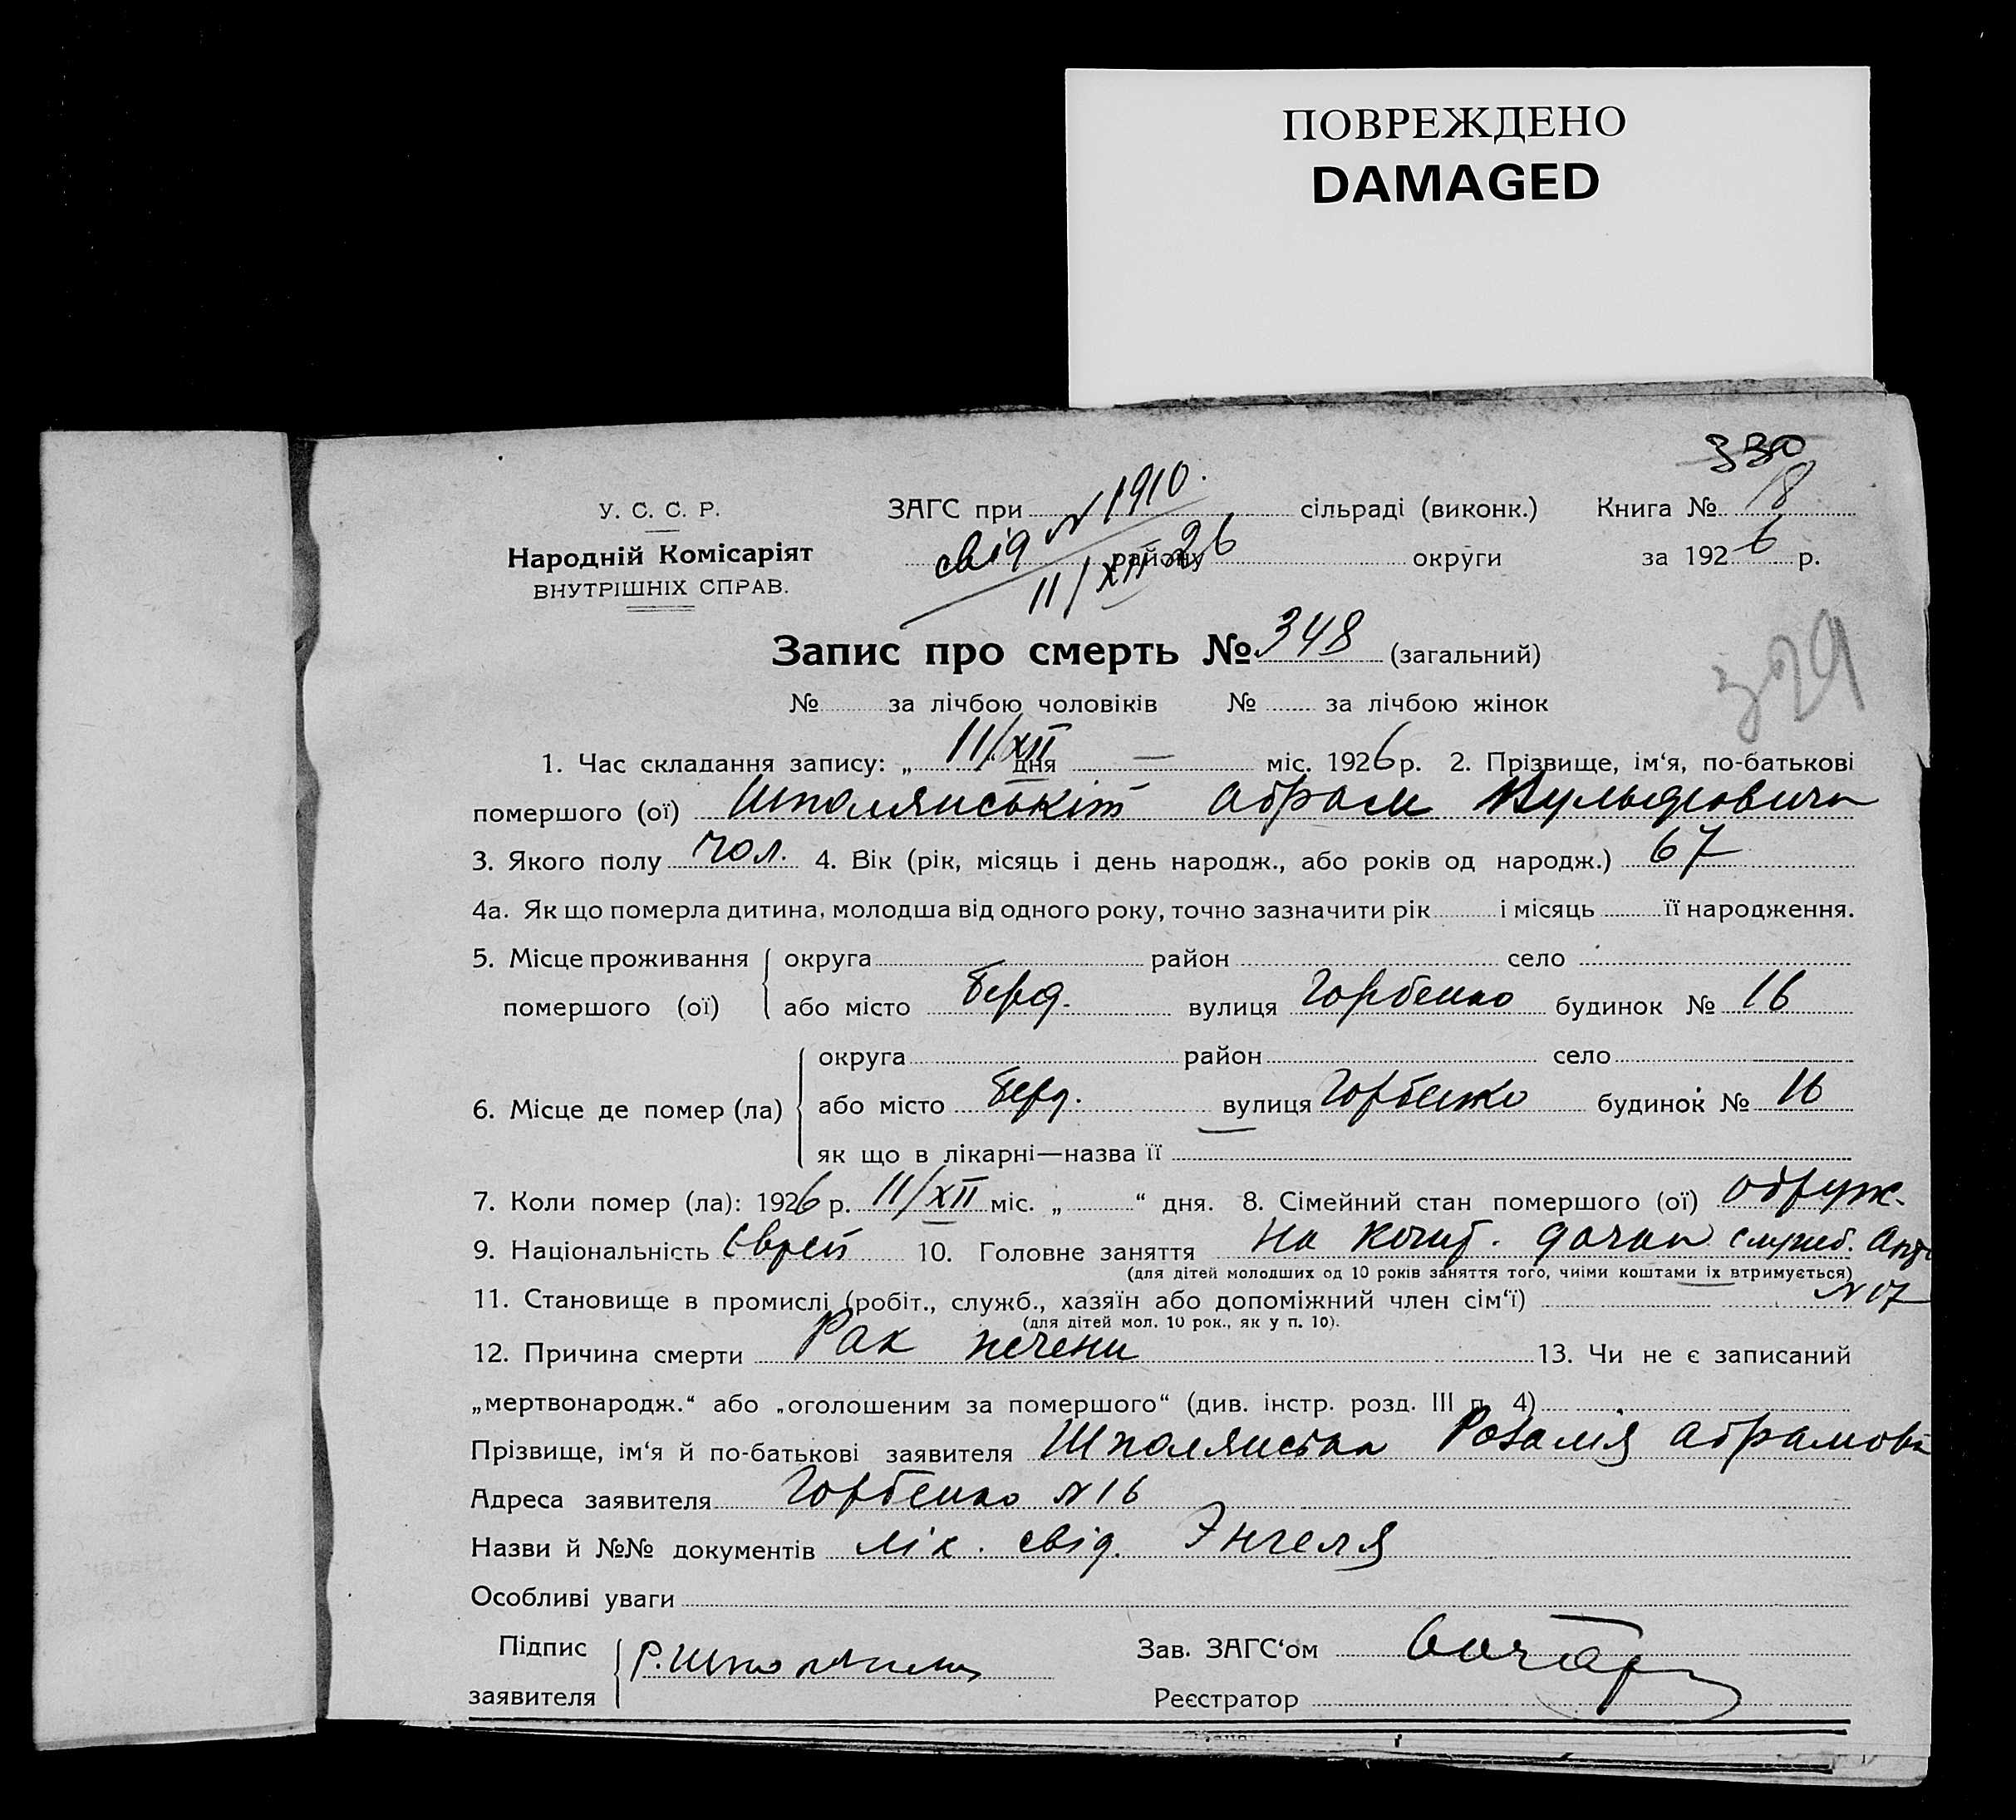 ПОВРЕЖДЕНО
DAMAGED
330
У. С. С. Р.
Народній Комісаріят
ВНУТРІШНІХ СПРАВ.
ЗАГС при сільраді (виконк.) Книга № 18
свід № 1910.
району округи за 1926 р.
11/XII 26
Запис про смерть № 348 (загальний)
329
№ за лічбою чоловіків № за лічбою жінок
1. Час складання запису: „ 11/XII “ дня — міс. 1926 р. 2. Прізвище, ім‘я, по-батькові
помершого (ої) Шполянській Абрам Вульфович
3. Якого полу чол. 4. Вік (рік, місяць і день народж., або років од народж.) 67
4а. Як що померла дитина, молодша від одного року, точно зазначити рік і місяць її народження.
5. Місце проживання помершого (ої) округа район село
або місто Берд. вулиця Горбенко будинок № 16
6. Місце де помер (ла) округа район село
або місто Берд. вулиця Горбенко будинок № 16
як що в лікарні—назва її
7. Коли помер (ла): 1926 р. 11/XII міс. „ “ дня. 8. Сімейний стан помершого (ої) одруж.
9. Національність Єврей 10. Головне заняття На кошт. дочки служб.
(для дітей молодших од 10 років заняття того, чиїми коштами їх втримується)
№ 17
11. Становище в промислі (робіт., служб., хазяїн або допоміжний член сім‘ї)
(для дітей мол. 10 рок., як у п. 10).
12. Причина смерти Рак печени 13. Чи не є записаний
„мертвонародж.“ або „оголошеним за помершого“ (див. інстр. розд. III п. 4)
Прізвище, ім‘я й по-батькові заявителя Шполянська Розалія Абрамовн
Адреса заявителя Горбенко № 16
Назви й №№ документів лік. свід. Энгеля
Особливі уваги
Підпис заявителя Р. Шполянська Зав. ЗАГС‘ом
Реєстратор